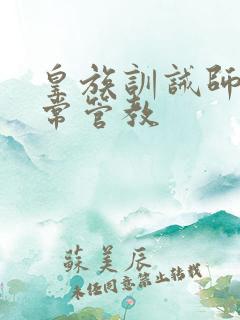 皇族訓誡師
常管教
蘇美辰
未經同意禁止轉載